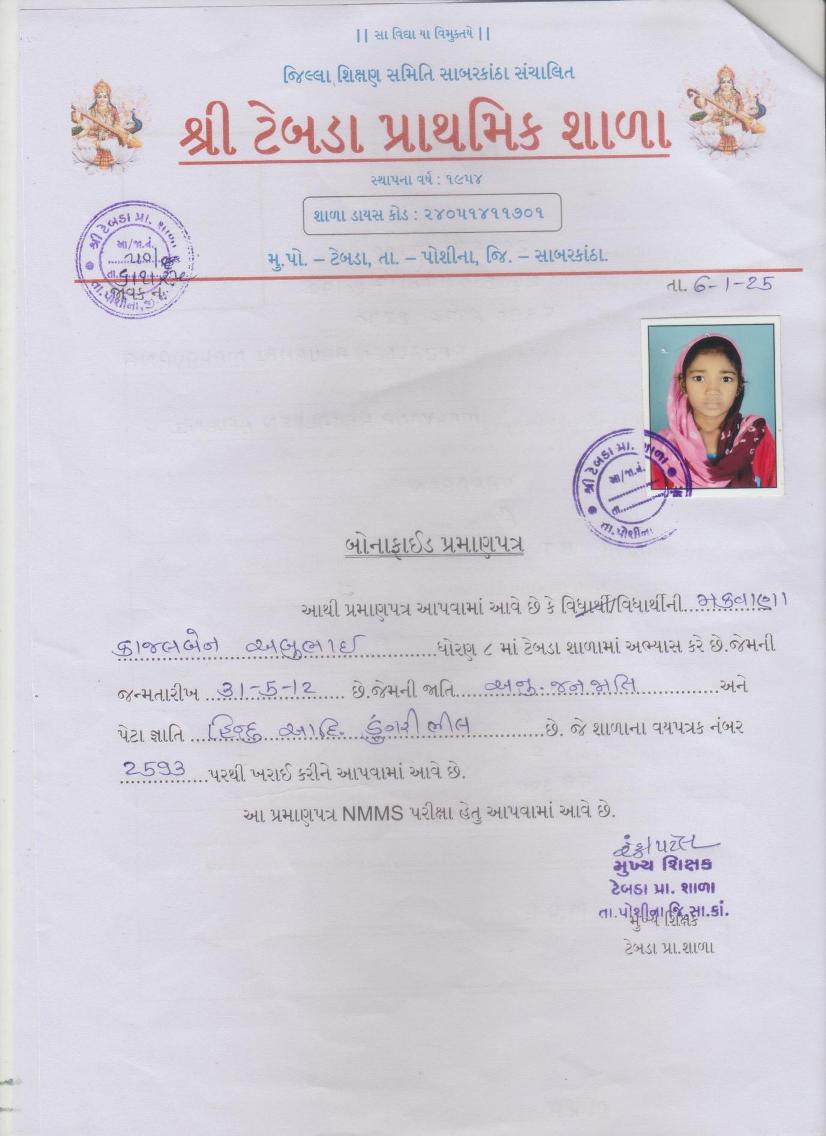 || સા વિદ્યા યા વિમુક્તયે ||
જિલ્લા શિક્ષણ સમિતિ સાબરકાંઠા સંચાલિત
શ્રી ટેબડા પ્રાથમિક શાળા
સ્થાપના વર્ષ : ૧૯૫૪
શાળા ડાયસ કોડ : ૨૪૦૫૧૪૧૧૭૦૧
મુ.પો. – ટેબડા, તા. – પોશીના, જિ. – સાબરકાંઠા.
શ્રી ટેબડા પ્રા. શાળા
આ/જા.નં.
તા.
જાવક નં.
તા.પોશીના,જી.
તા. 6-1-25
શ્રી ટેબડા પ્રા. શાળા
આ/જા.નં.
તા.
તા.પોશીના
બોનાફાઈડ પ્રમાણપત્ર
આથી પ્રમાણપત્ર આપવામાં આવે છે કે વિદ્યાર્થી/વિદ્યાર્થીની મકવાણા
કાજલબેન અબુભાઈ ધોરણ ૮ માં ટેબડા શાળામાં અભ્યાસ કરે છે.જેમની
જન્મતારીખ 31-5-12 છે.જેમની જાતિ અનુ. જનજાતિ અને
પેટા જ્ઞાતિ હિન્દુ આદિ. ડુંગરી ભીલ છે. જે શાળાના વયપત્રક નંબર
2593 પરથી ખરાઈ કરીને આપવામાં આવે છે.
આ પ્રમાણપત્ર NMMS પરીક્ષા હેતુ આપવામાં આવે છે.
મુખ્ય શિક્ષક
ટેબડા પ્રા. શાળા
તા.પોશીના જિ.સા.કાં.
મુખ્ય શિક્ષક
ટેબડા પ્રા.શાળા